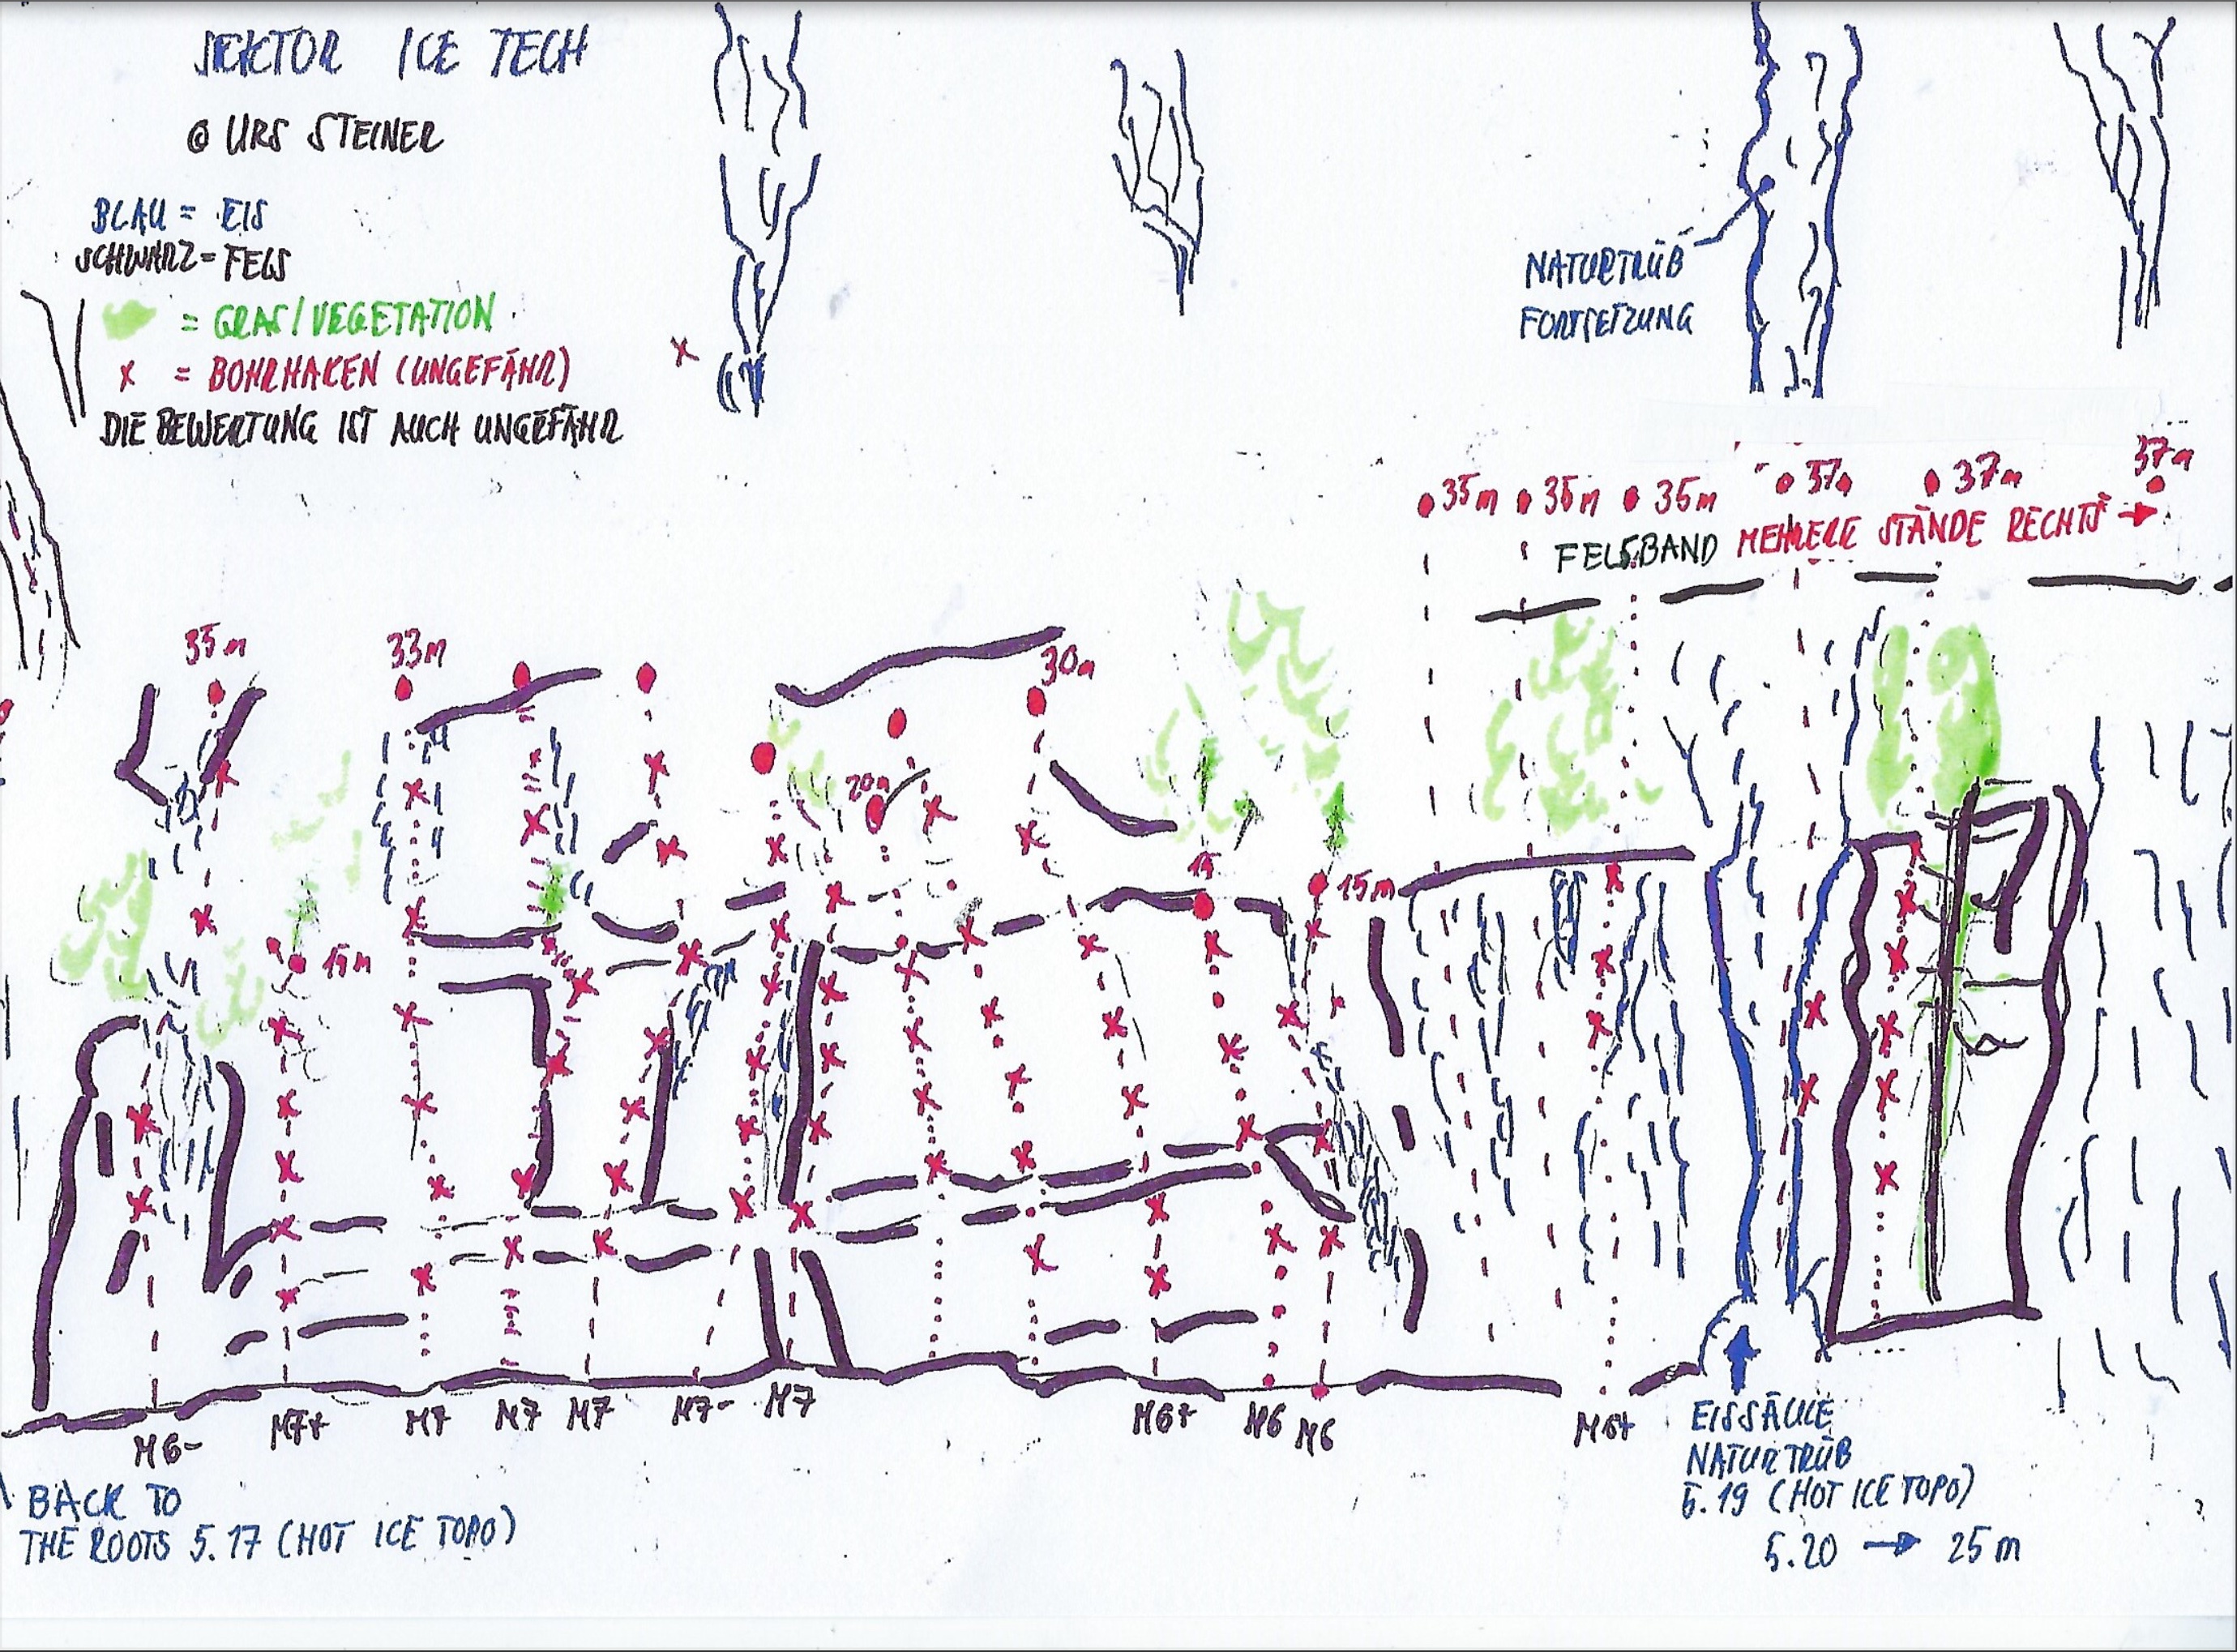 SEKTOR ICE TECH
@ URS STEINER
BLAU = EIS
SCHWARZ = FELS
= GRAS/VEGETATION
x = BOHRHAKEN (UNGEFÄHR)
DIE BEWERTUNG IST AUCH UNGEFÄHR
NATURTRÜB
FORTSETZUNG
35m 35m 35m 37m 37m 37m
FELSBAND MEHRERE STÄNDE RECHTS →
35m 33m 30m
20m
15m
15m
M6- M7+ M7 M7 M7 M7- M7 M6+ M6 M6 M6+
BACK TO
THE ROOTS 5.17 (HOT ICE TOPO)
EISSÄULE
NATURTRÜB
5.19 (HOT ICE TOPO)
5.20 → 25m